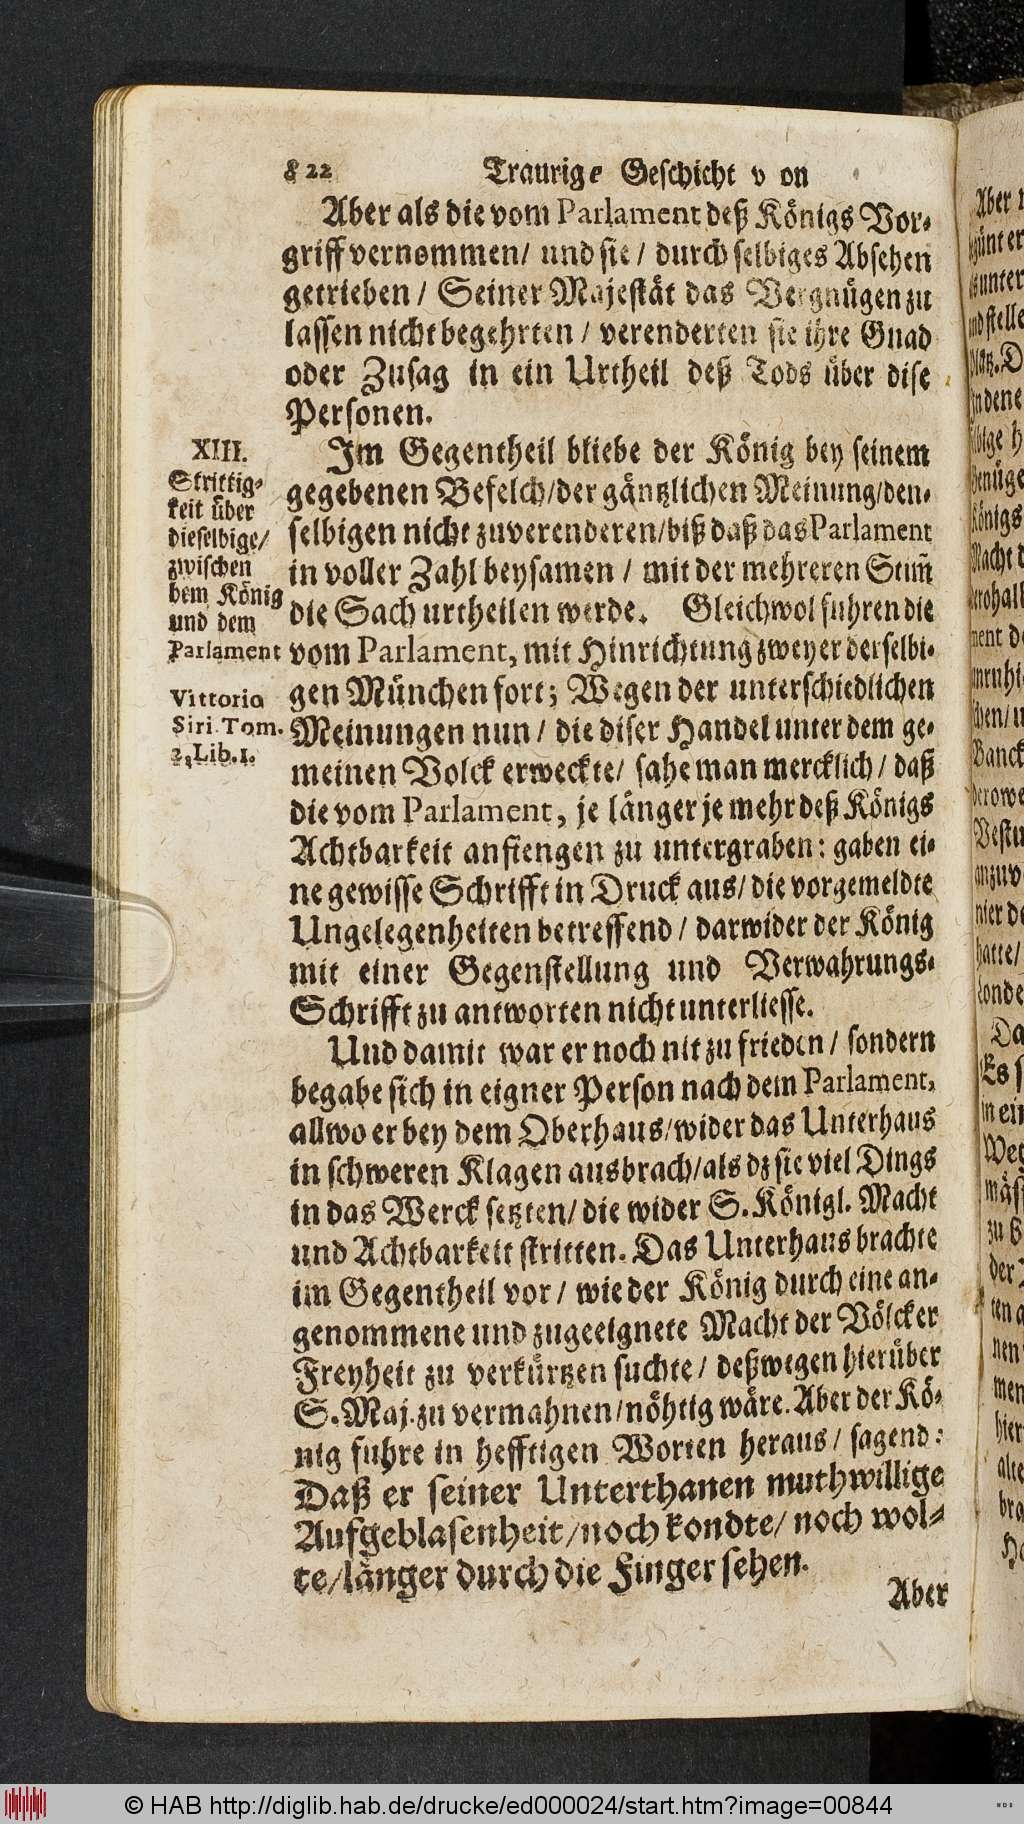 822 Traurige Geschicht von
Aber als die vom Parlament deß Königs Vor-
griff vernommen/ und sie/ durch selbiges Absehen
getrieben/ Seiner Majestät das Vergnügen zu
lassen nicht begehrten/ verenderten sie ihre Gnad
oder Zusag in ein Urtheil deß Tods über dise
Personen.
XIII.
Strittig-
keit über
dieselbige/
zwischen
dem König
und dem
Parlament
Vittorio
Siri Tom.
2. Lib. 1.
Im Gegentheil bliebe der König bey seinem
gegebenen Befelch/der gäntzlichen Meinung/den-
selbigen nicht zuverenderen/biß daß das Parlament
in voller Zahl beysamen/ mit der mehreren Stim̃
die Sach urtheilen werde. Gleichwol fuhren die
vom Parlament, mit Hinrichtung zweyer derselbi-
gen München fort; Wegen der unterschiedlichen
Meinungen nun/ die diser Handel unter dem ge-
meinen Volck erweckte/ sahe man mercklich/ daß
die vom Parlament, je länger je mehr deß Königs
Achtbarkeit anfiengen zu untergraben: gaben ei-
ne gewisse Schrifft in Druck aus/ die vorgemeldte
Ungelegenheiten betreffend/ darwider der König
mit einer Gegenstellung und Verwahrungs-
Schrifft zu antworten nicht unterliesse.
Und damit war er noch nit zu frieden/ sondern
begabe sich in eigner Person nach dem Parlament,
allwo er bey dem Oberhaus/wider das Unterhaus
in schweren Klagen ausbrach/als dz sie viel Dings
in das Werck setzten/ die wider S. Königl. Macht
und Achtbarkeit stritten. Das Unterhaus brachte
im Gegentheil vor/ wie der König durch eine an-
genommene und zugeeignete Macht der Völcker
Freyheit zu verkürtzen suchte/ deßwegen hierüber
S. Maj. zu vermahnen/nöhtig wäre. Aber der Kö-
nig fuhre in hefftigen Worten heraus/ sagend:
Daß er seiner Unterthanen muthwillige
Aufgeblasenheit/noch kondte/ noch wol-
te/länger durch die Finger sehen.
Aber
© HAB http://diglib.hab.de/drucke/ed000024/start.htm?image=00844